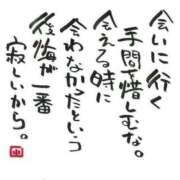 会いに行く
手間を惜しむな。
会える時に
会わなかったという
後悔が一番
寂しいから。